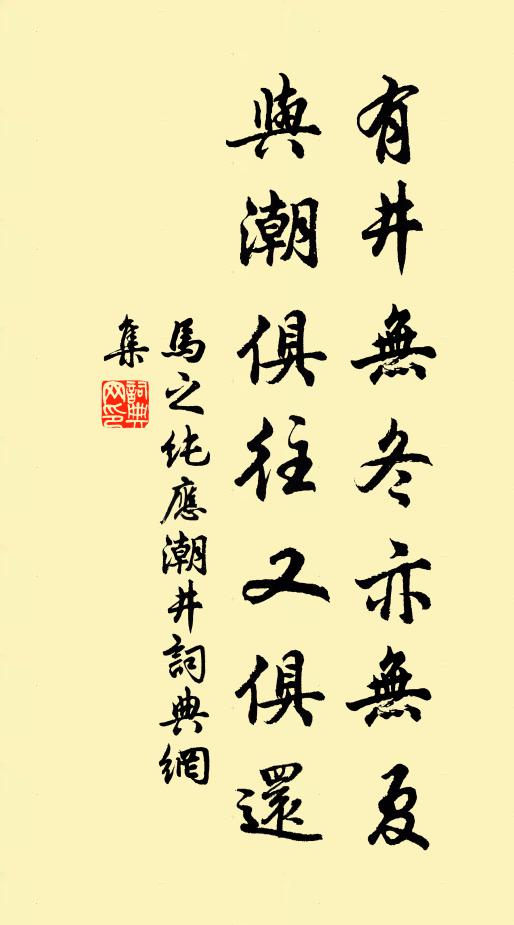 有井無冬亦無夏
與潮俱往又俱還
馬之純應潮井詞典網
集
詞典網印